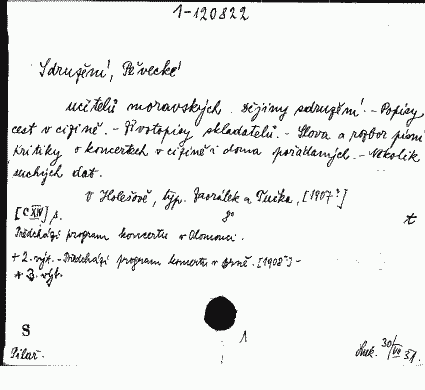 1-120822
Sdružení, Pěvecké
učitelů moravských. Dějiny sdružení. - Popisy
cest v cizině. - Životopisy skladatelů. - Slova a rozbor písní
kritiky o koncertech v cizině i doma pořádaných. - Několik
suchých dat.
V Holešově, typ. Zavrálek a Tučka, [1907?]
[CXIV] s. 8° t
Předchází program koncertu v Olomouci.
+ 2. výt. - Předchází program koncertu v Brně. [1908] -
+ 3. výt.
S
1
Pilař. 30/VII 31.